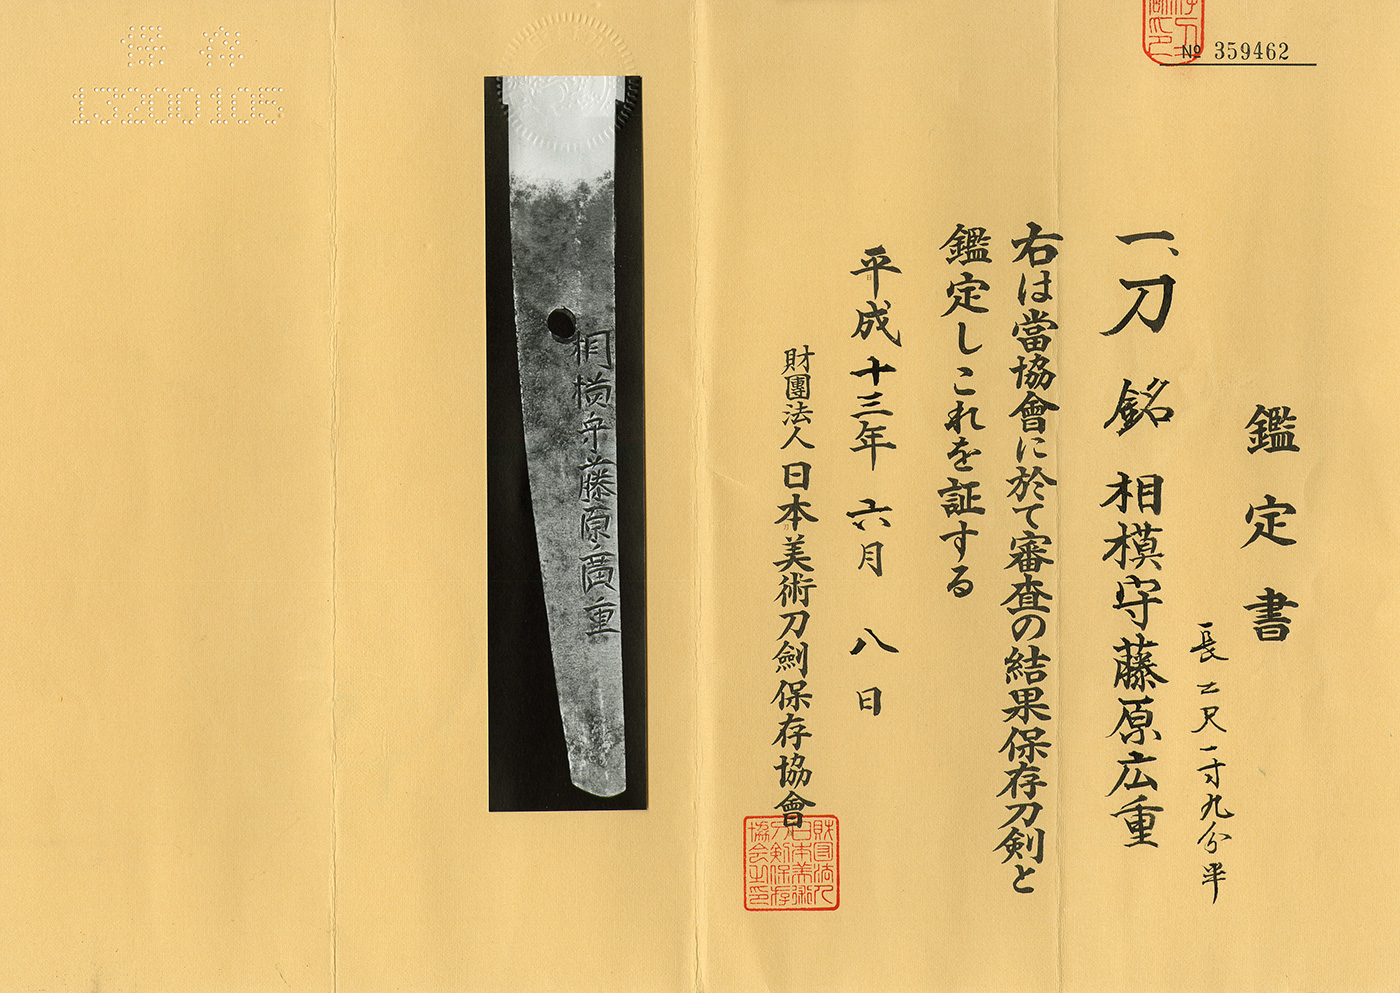 № 359462
鑑定書
長二尺一寸九分半
一、刀 銘 相模守藤原広重
右は當協會に於て審査の結果保存刀剣と
鑑定しこれを証する
平成十三年 六月 八日
財團法人日本美術刀劍保存協會
財団法人日本美術刀剣保存協会之印
相模守藤原廣重
保存
13200105